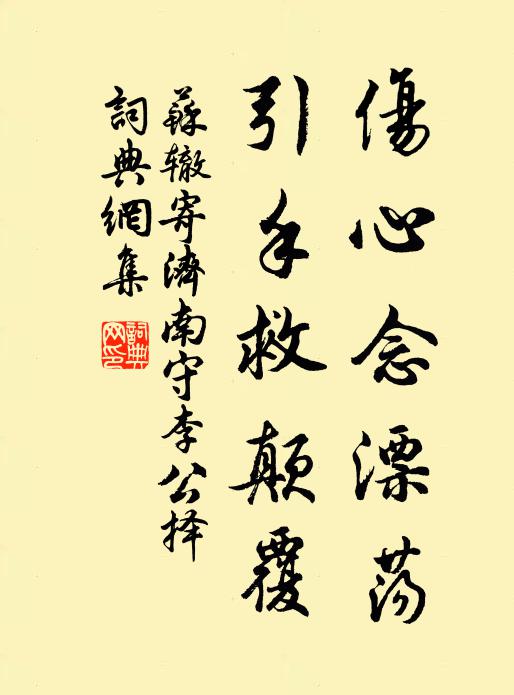 傷心念漂蕩
引手救顛覆
蘇辙寄濟南守李公择
詞典網集
詞典網印